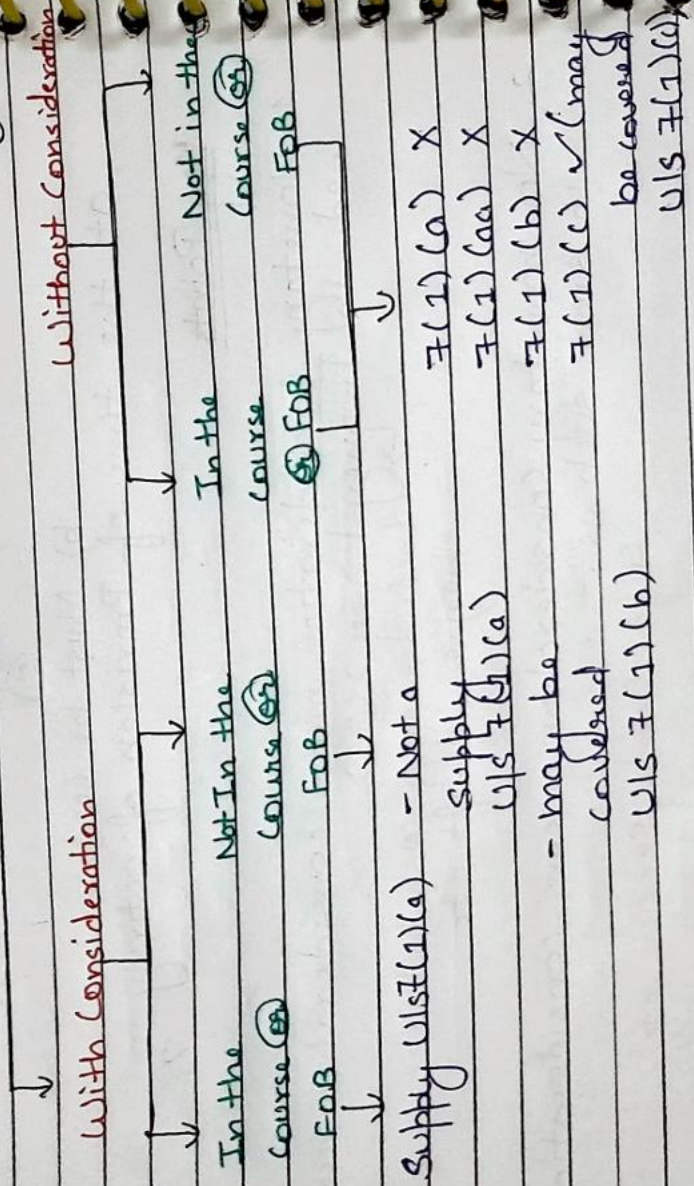 With Consideration
Without Consideration
In the
Course or
FOB
Not In the
Course or
FOB
In the
Course
or FOB
Not in the
Course or
FOB
Supply U/s 7(1)(a)
- Not a
Supply
U/s 7(1)(a)
- may be
covered
U/s 7(1)(b)
7(1)(a) X
7(1)(aa) X
7(1)(b) X
7(1)(c) ✓ (may
be covered
U/s 7(1)(c))